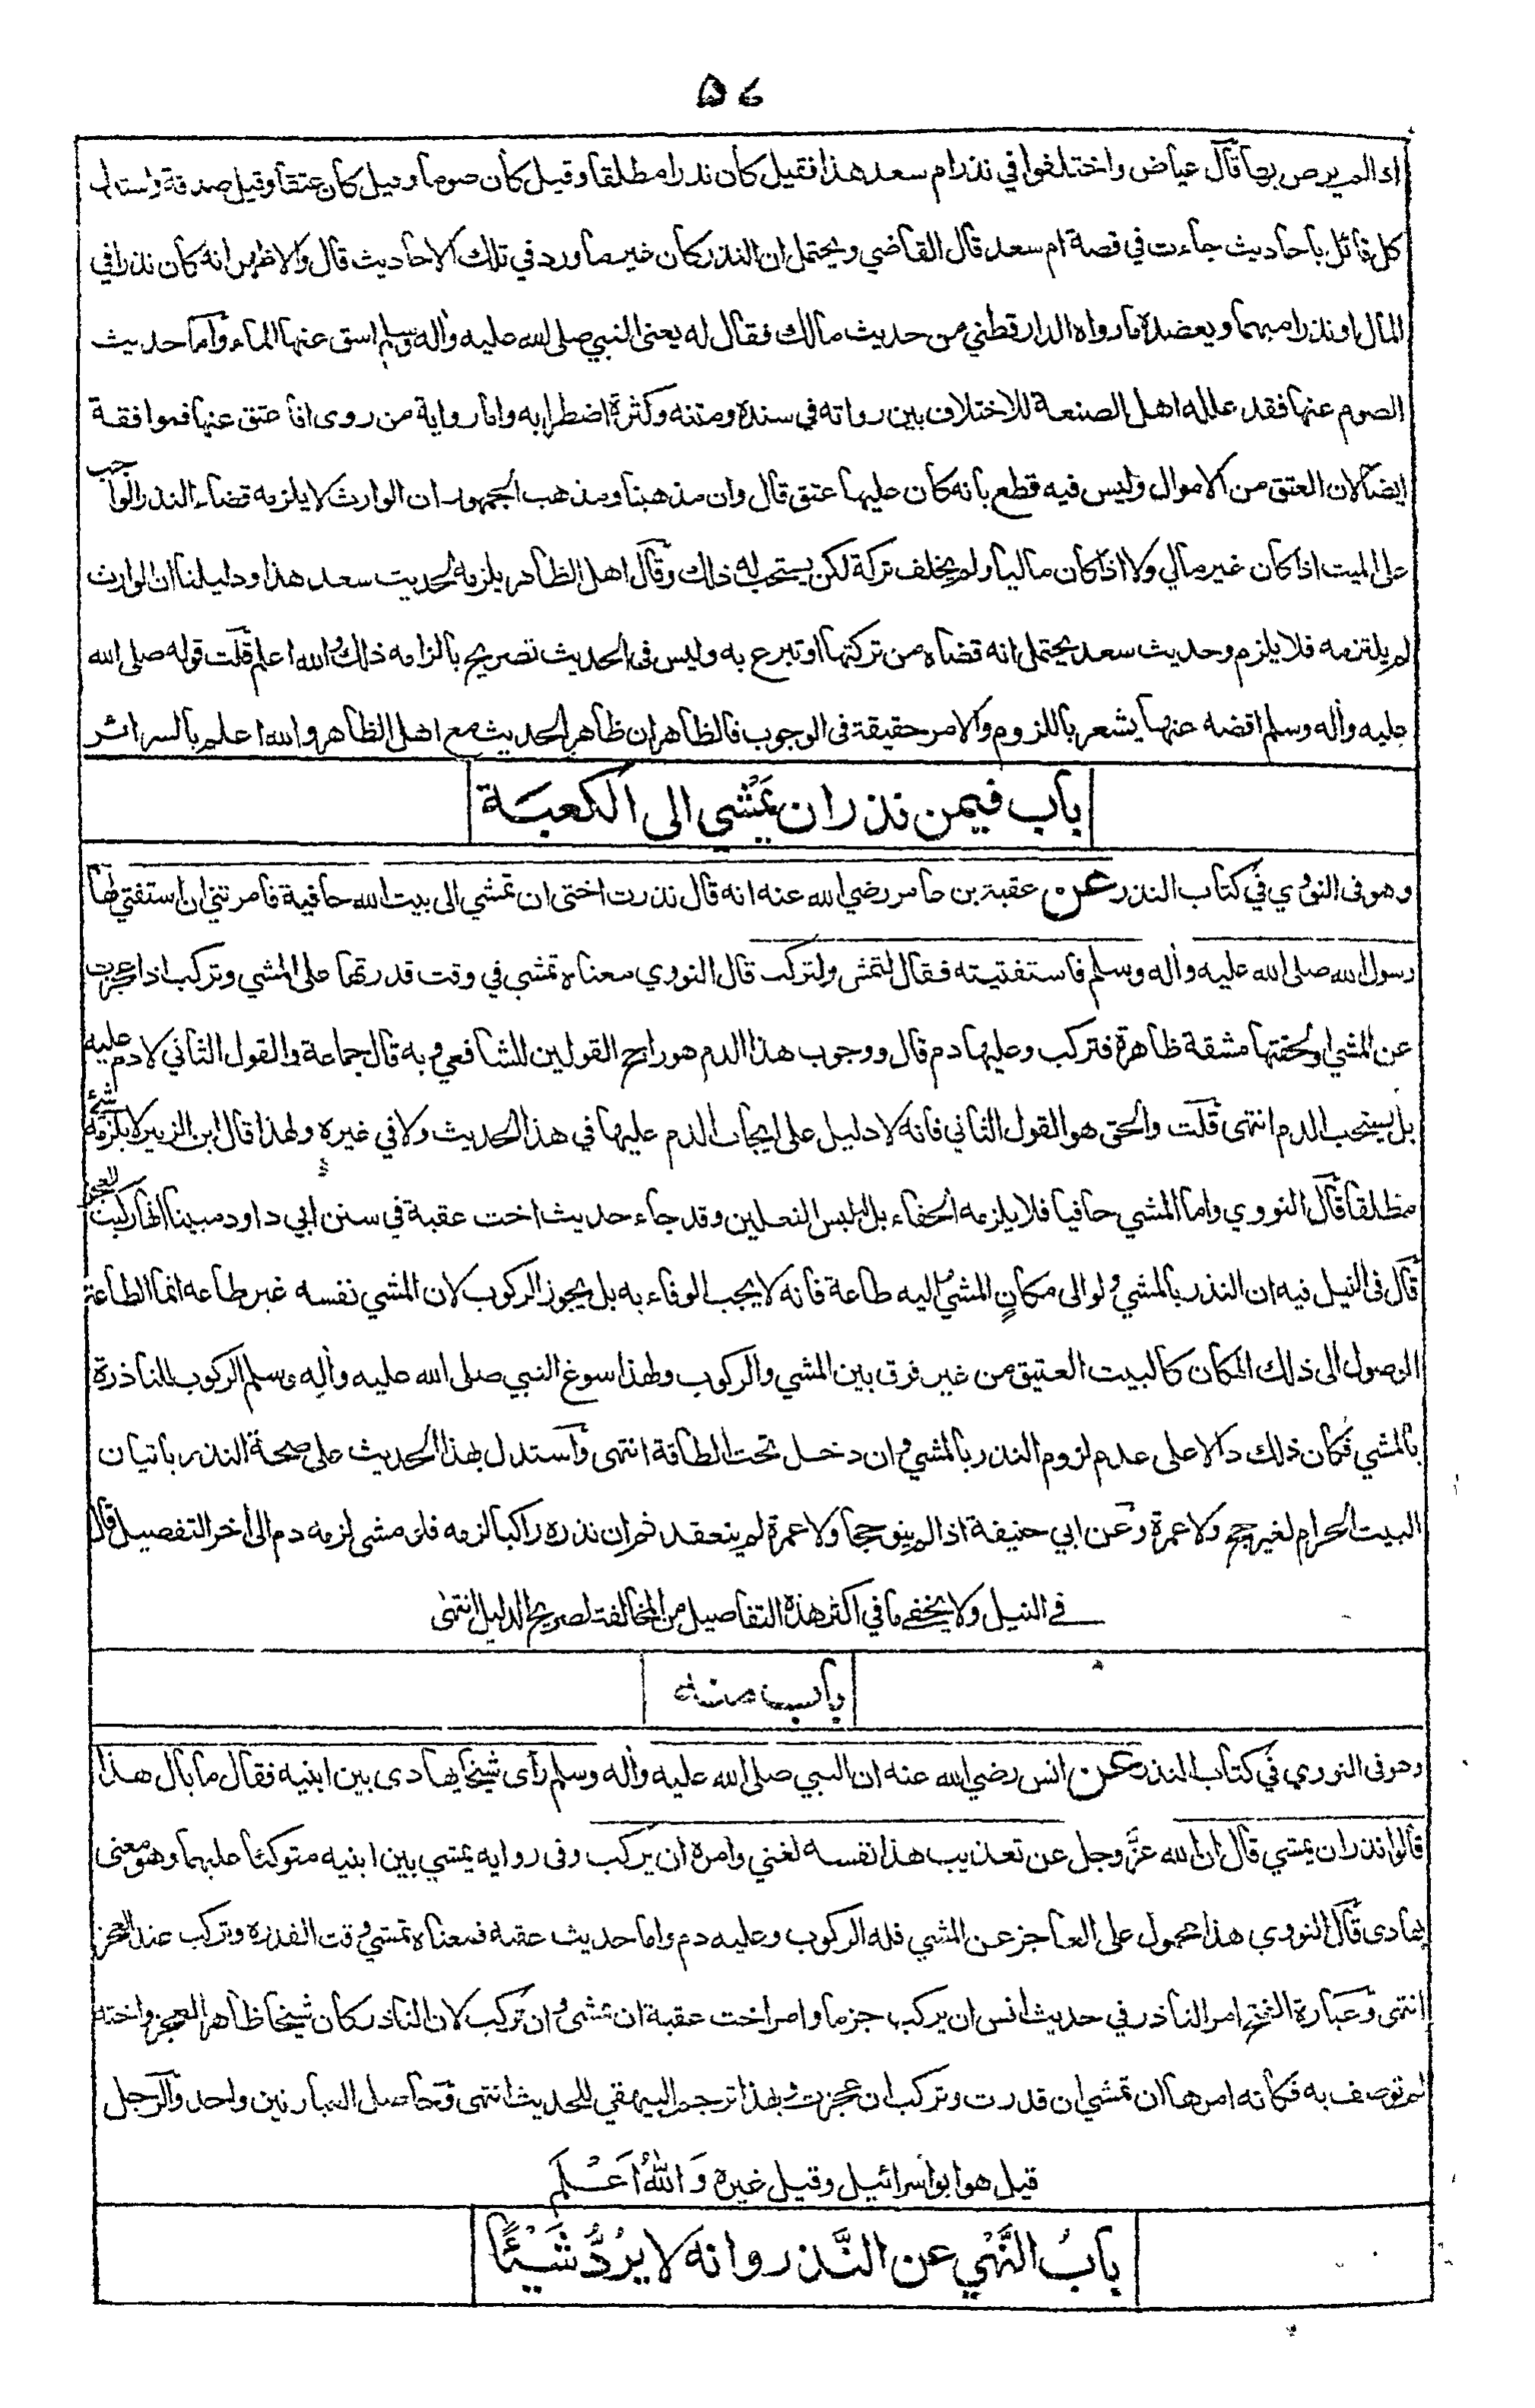 ٥٦
اذا لم يرض بها قال عياض واختلفوا في نذر ام سعد هذا فقيل كان نذرا مطلقا وقيل كان صوما وقيل كان عتقا وقيل صدقة واستدل
كل قائل باحاديث جاءت في قصة ام سعد قال القاضي ويحتمل ان النذر كان غير ما ورد في تلك الاحاديث قال والاظهر انه كان نذرا في
المال او نذرا مبهما ويعضده ما رواه الدارقطني من حديث مالك فقال له يعنى النبي صلى الله عليه واله وسلم اسق عنها الماء واما حديث
الصوم عنها فقد علله اهل الصنعة للاختلاف بين رواته في سنده ومتنه وكثرة اضطرابه واما رواية من روى افاعتق عنها فموافقة
ايضا لان العتق من الاموال وليس فيه قطع بانه كان عليها عتق قال وان مذهبنا ومذهب الجمهور ان الوارث لا يلزمه قضاء النذر الواجب
على الميت اذا كان غير مالي ولا اذا كان ماليا ولم يخلف تركة لكن يستحب له ذلك وقال اهل الظاهر يلزمه لحديث سعد هذا ودليلنا ان الوارث
لم يلتزمه فلا يلزم وحديث سعد يحتمل انه قضاه من تركتها او تبرع به وليس فى الحديث تصريح بالزامه ذلك والله اعلم قلت قوله صلى الله
عليه واله وسلم اقضه عنها يشعر باللزوم والامر حقيقة فى الوجوب فالظاهر ان ظاهر الحديث مع اهل الظاهر والله اعلم بالسرائر
باب فيمن نذر ان يمشي الى الكعبة
وهو فى النووي في كتاب النذر عن عقبة بن عامر رضي الله عنه انه قال نذرت اختى ان تمشي الى بيت الله حافية فامرتني ان استفتي لها
رسول الله صلى الله عليه واله وسلم فاستفتيته فقال لتمش ولتركب قال النووي معناه تمشي في وقت قدرتها على المشي وتركب اذا عجزت
عن المشي او لحقتها مشقة ظاهرة فتركب وعليها دم قال ووجوب هذا الدم هو راجح القولين للشافعي وبه قال جماعة والقول الثاني لا دم عليه
بل يستحب الدم انتهى قلت والحق هو القول الثاني فانه لا دليل على ايجاب الدم عليها في هذا الحديث ولا في غيره ولهذا قال ابن الزبير لا يلزمه شئ
مطلقا قال النووي واما المشي حافيا فلا يلزمه الحفاء بل لبس النعلين وقد جاء حديث اخت عقبة في سنن ابي داود مبينا انها ركبت للعجز
قال فى النيل فيه ان النذر بالمشي ولو الى مكان المشي اليه طاعة فانه لا يجب الوفاء به بل يجوز الركوب لان المشي نفسه غير طاعة انما الطاعة
الوصول الى ذلك المكان كالبيت العتيق من غير فرق بين المشي والركوب ولهذا سوغ النبي صلى الله عليه واله وسلم الركوب للناذرة
بالمشي فكان ذلك دالا على عدم لزوم النذر بالمشي وان دخل تحت الطاقة انتهى واستدل بهذا الحديث على صحة النذر باتيان
البيت الحرام لغير حج ولا عمرة وعن ابي حنيفة اذا لم ينو حجا ولا عمرة لم ينعقد ثم ان نذره راكبا لزمه فلو مشى لزمه دم الى آخر التفصيل قال
في النيل ولا يخفى ما في اكثر هذه التفاصيل من المخالفة لصريح الدليل انتهى
باب منه
وهو فى النووي في كتاب النذر عن انس رضي الله عنه ان النبي صلى الله عليه واله وسلم رآى شيخا يهادى بين ابنيه فقال ما بال هذا
قالوا نذر ان يمشي قال ان الله عزَّ وجل عن تعذيب هذا نفسه لغني وامره ان يركب وفى رواية يمشي بين ابنيه متوكئا عليهما وهو معنى
يهادى قال النووي هذا محمول على العاجز عن المشي فله الركوب وعليه دم واما حديث عقبة فمعناه تمشي وقت القدرة وتركب عند العجز
انتهى وعبارة الفتح امر الناذر في حديث انس ان يركب جزما وامر اخت عقبة ان تمشي وان تركب لان الناذر كان شيخا ظاهر العجز واخته
لم توصف به فكانه امرها ان تمشي ان قدرت وتركب ان عجزت وبهذا ترجم البيهقي للحديث انتهى وحاصل العبارتين واحد والرجل
قيل هو ابو اسرائيل وقيل غيره وَاللهُ اَعْلَم
بابُ النَّهْيِ عن النَّذر وانه لا يرُدُّ شَيْئًا